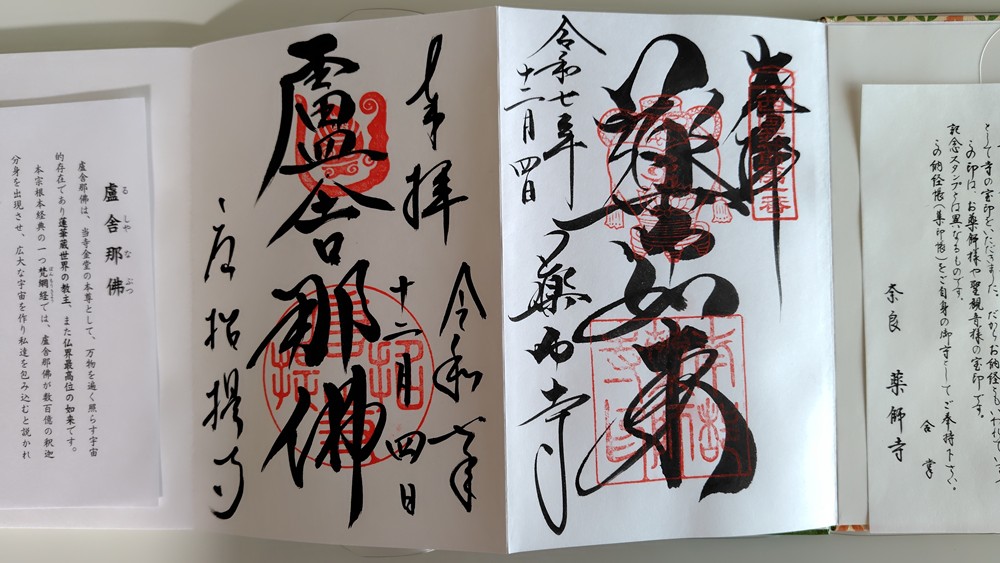 として寺の宝印をいただきました。だからお納経ともいわれてい
この印は、お薬師様や聖観音様の宝印です。
記念スタンプとは異なるものです。
この納経帳(集印帳)をご自身の御守としてご奉持下さい。
合掌
奈良 薬師寺
奉拝
薬師如来
令和七年
十二月四日
薬師寺
奉拝
令和七年
十二月四日
盧舎那佛
唐招提寺
盧舎那佛
るしゃなぶつ
盧舎那佛は、当寺金堂の本尊として、万物を遍く照らす宇宙
的存在であり蓮華蔵世界の教主、また仏界最高位の如来です。
本宗根本経典の一つ梵網経では、盧舎那佛が数百億の釈迦
分身を出現させ、広大な宇宙を作り私達を包み込むと説かれ